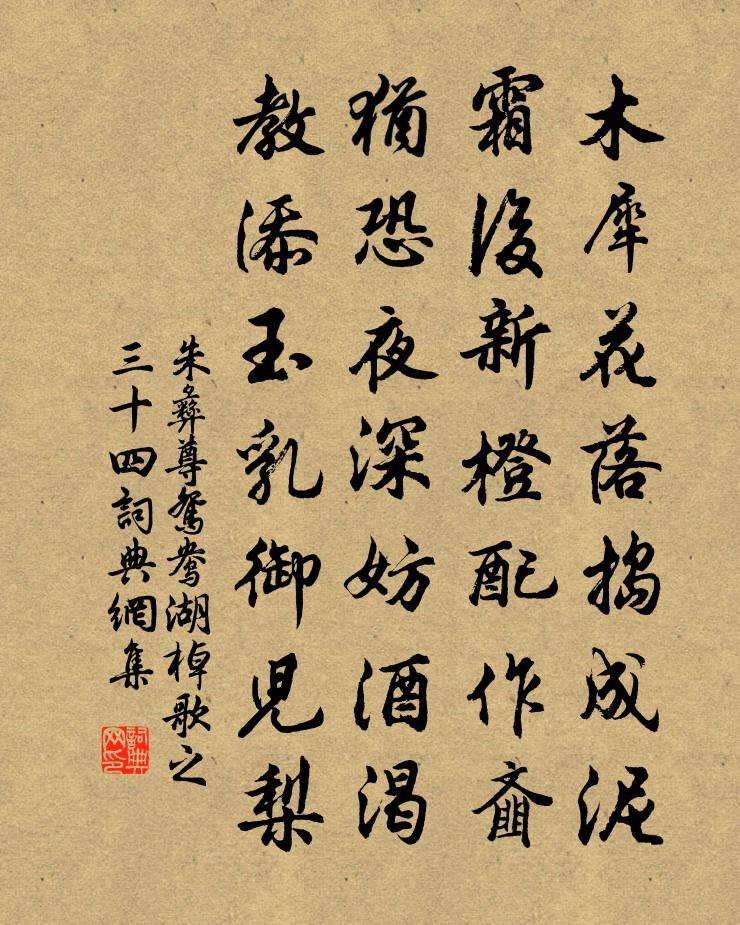 木犀花落搗成泥
霜後新橙配作齏
猶恐夜深妨酒渴
教添玉乳御兒梨
朱彝尊鴛鴦湖棹歌之
三十四詞典網集
詞典網印